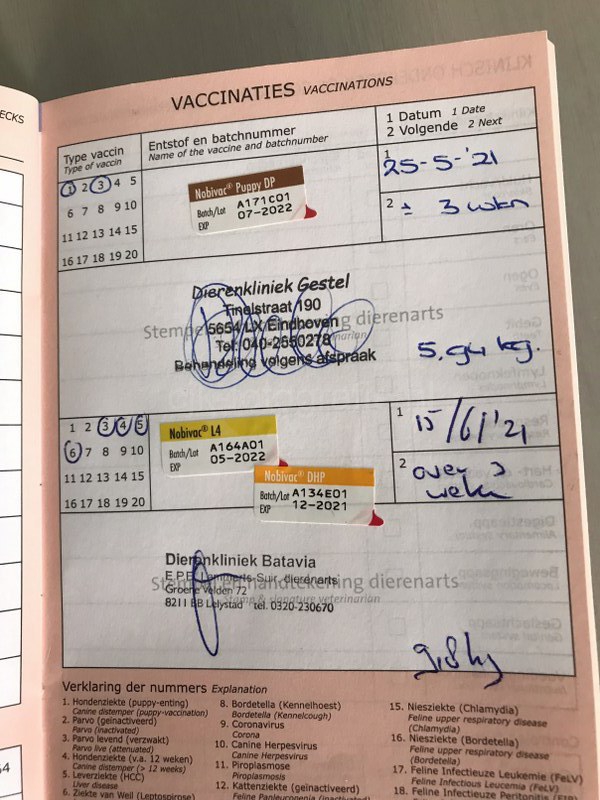 ECKS
VACCINATIES VACCINATIONS
Type vaccin
Type of vaccin
Entstof en batchnummer
Name of the vaccine and batchnumber
1 Datum 1 Date
2 Volgende 2 Next
1 2 3 4 5
6 7 8 9 10
11 12 13 14 15
16 17 18 19 20
Nobivac® Puppy DP
Batch/Lot A171C01
EXP 07-2022
1 25-5-'21
2 ± 3 wkn
Dierenkliniek Gestel
Tinelstraat 190
5654 LX Eindhoven
Tel: 040-2550278
Behandeling volgens afspraak
5.94 kg.
1 2 3 4 5
6 7 8 9 10
11 12 13 14 15
16 17 18 19 20
Nobivac® L4
Batch/Lot A164A01
EXP 05-2022
Nobivac® DHP
Batch/Lot A134E01
EXP 12-2021
1 15/6/'21
2 over 3
weken
Dierenkliniek Batavia
Stempel en handtekening dierenarts
Groene Velden 72
Stamp & signature veterinarian
8211 BB Lelystad tel. 0320-230670
9,8 kg
Verklaring der nummers Explanation
1. Hondenziekte (puppy-enting)
Canine distemper (puppy-vaccination)
2. Parvo (geïnactiveerd)
Parvo (inactivated)
3. Parvo levend (verzwakt)
Parvo live (attenuated)
4. Hondenziekte (v.a. 12 weken)
Canine distemper (> 12 weeks)
5. Leverziekte (HCC)
Liver disease
6. Ziekte van Weil (Leptospirose)
8. Bordetella (Kennelhoest)
Bordetella (Kennelcough)
9. Coronavirus
Corona
10. Canine Herpesvirus
Canine Herpesvirus
11. Piroplasmose
Piroplasmosis
12. Kattenziekte (geïnactiveerd)
Feline Panleucopenia (inactivated)
15. Niesziekte (Chlamydia)
Feline upper respiratory disease
(Chlamydia)
16. Niesziekte (Bordetella)
Feline upper respiratory disease
(Bordetella)
17. Feline Infectieuze Leukemie (FeLV)
Feline Infectious Leucemia (FeLV)
18. Feline Infectieuze Peritonitis